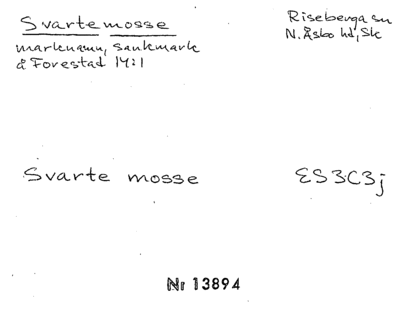 Svartemosse
Riseberga sn
N. Åsbo hd, Sk
marknamn, sankmark
å Forestad 14:1
Svarte mosse
ES3C3j
Nr 13894